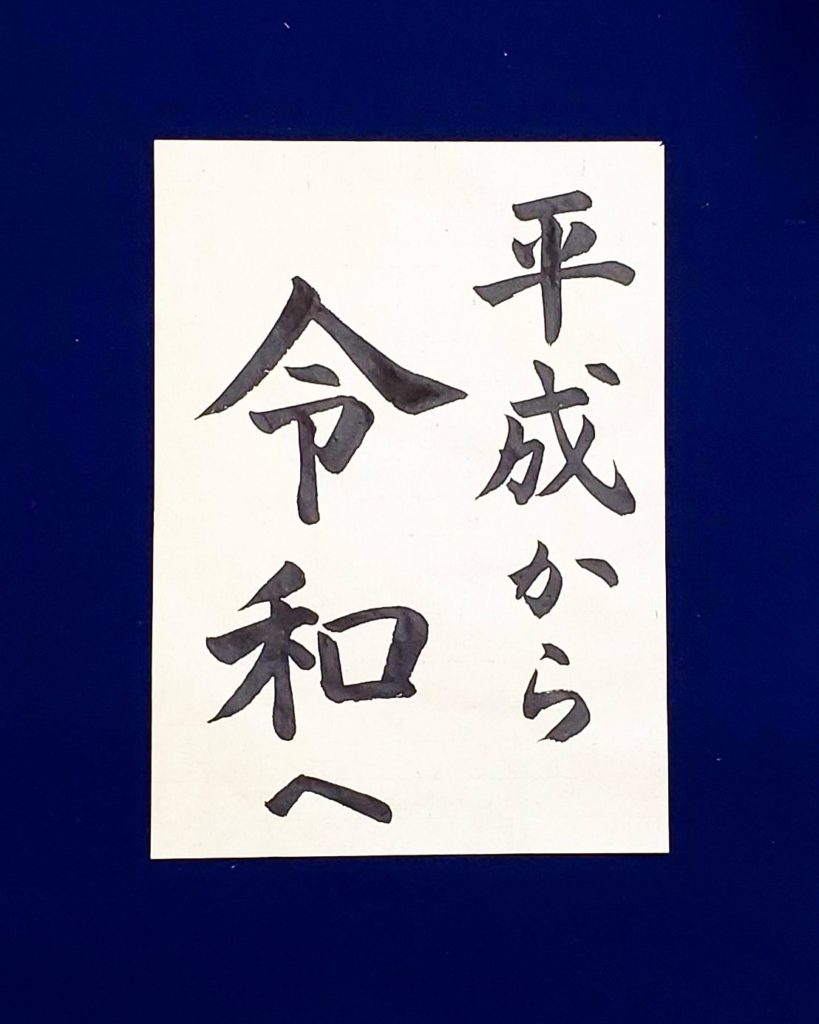 平成から
令和へ